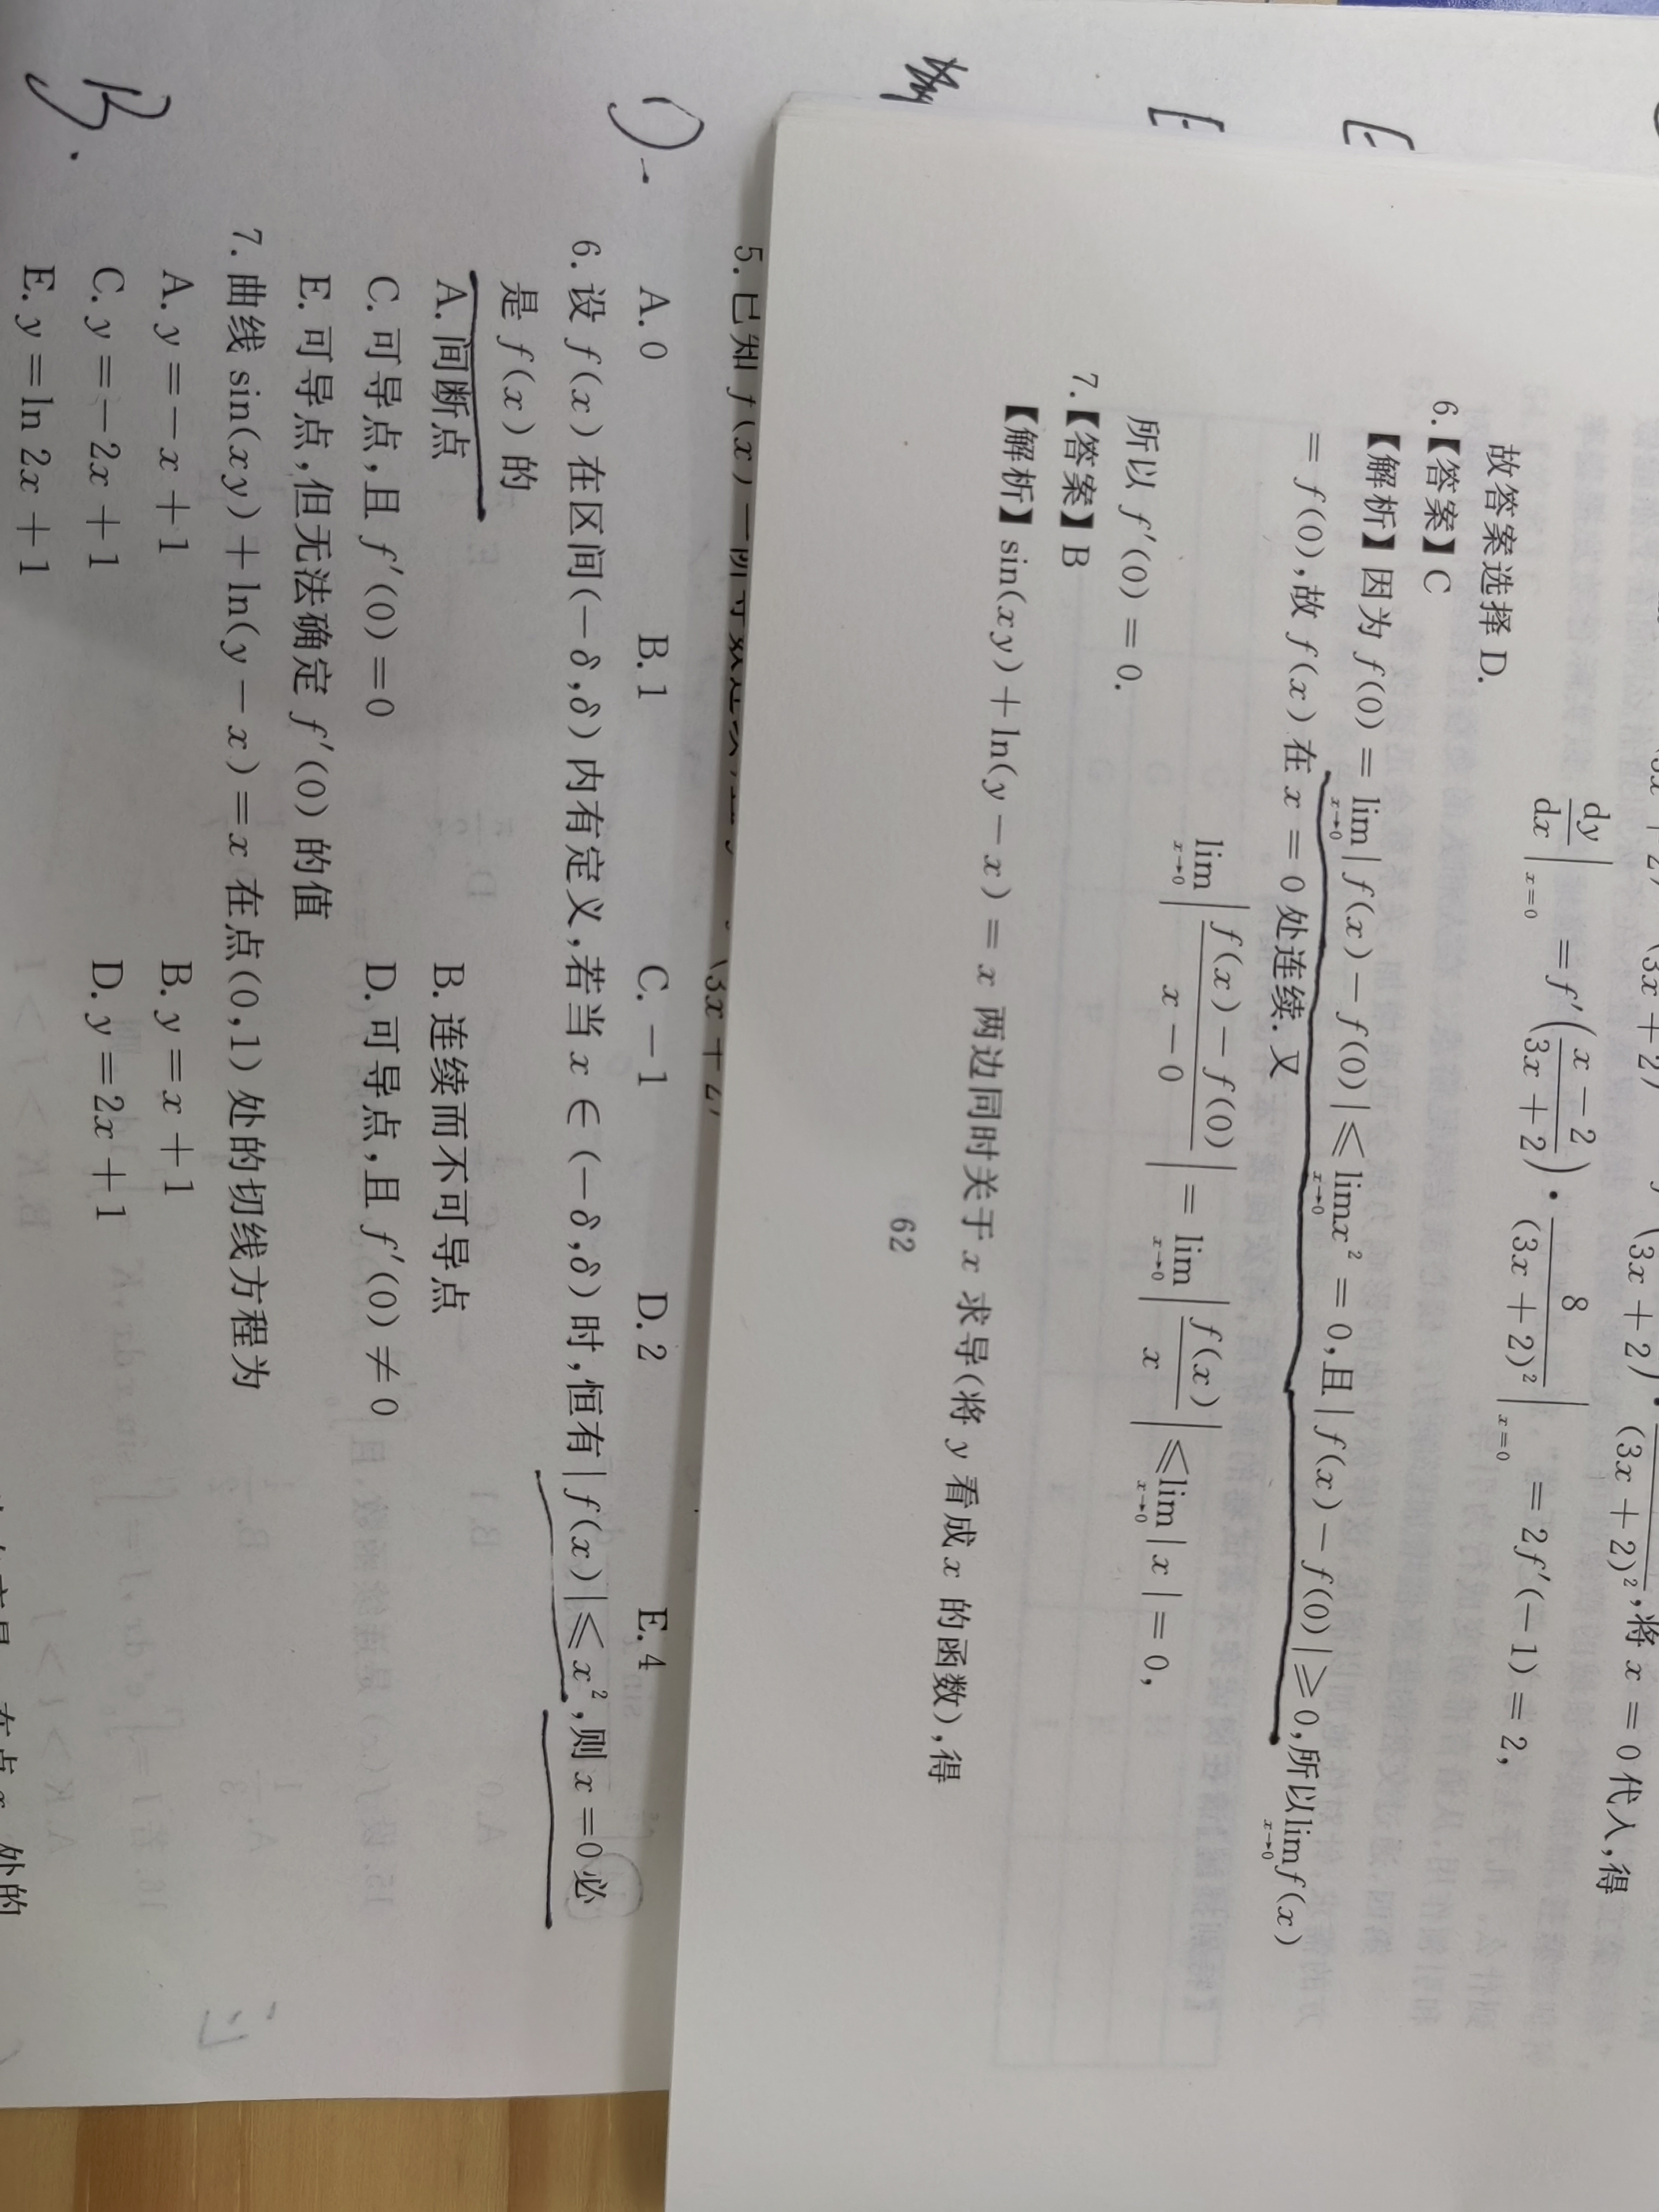 (3x+2)², 将 x = 0 代入, 得
dy/dx |ₓ₌₀ = f′((x−2)/(3x+2)) · 8/(3x+2)² |ₓ₌₀ = 2f′(−1) = 2,
故答案选择 D.
6.【答案】C
【解析】因为 f(0) = lim_{x→0} | f(x) − f(0) | ⩽ lim_{x→0} x² = 0, 且 | f(x) − f(0) | ⩾ 0, 所以 lim_{x→0} f(x)
= f(0), 故 f(x) 在 x = 0 处连续. 又
lim_{x→0} | (f(x) − f(0))/(x − 0) | = lim_{x→0} | f(x)/x | ⩽ lim_{x→0} | x | = 0,
所以 f′(0) = 0.
7.【答案】B
【解析】sin(xy) + ln(y − x) = x 两边同时关于 x 求导(将 y 看成 x 的函数), 得
62
E
E
5. 已知 f(x) 一阶可
D.
A. 0 B. 1 C. −1 D. 2 E. 4
6. 设 f(x) 在区间(−δ,δ) 内有定义, 若当 x ∈ (−δ,δ) 时, 恒有 | f(x) | ⩽ x², 则 x = 0 必
是 f(x) 的
A. 间断点 B. 连续而不可导点
C. 可导点, 且 f′(0) = 0 D. 可导点, 且 f′(0) ≠ 0
E. 可导点, 但无法确定 f′(0) 的值
B.
7. 曲线 sin(xy) + ln(y − x) = x 在点(0,1) 处的切线方程为
A. y = −x + 1 B. y = x + 1
C. y = −2x + 1 D. y = 2x + 1
E. y = ln 2x + 1
在点 x 处的